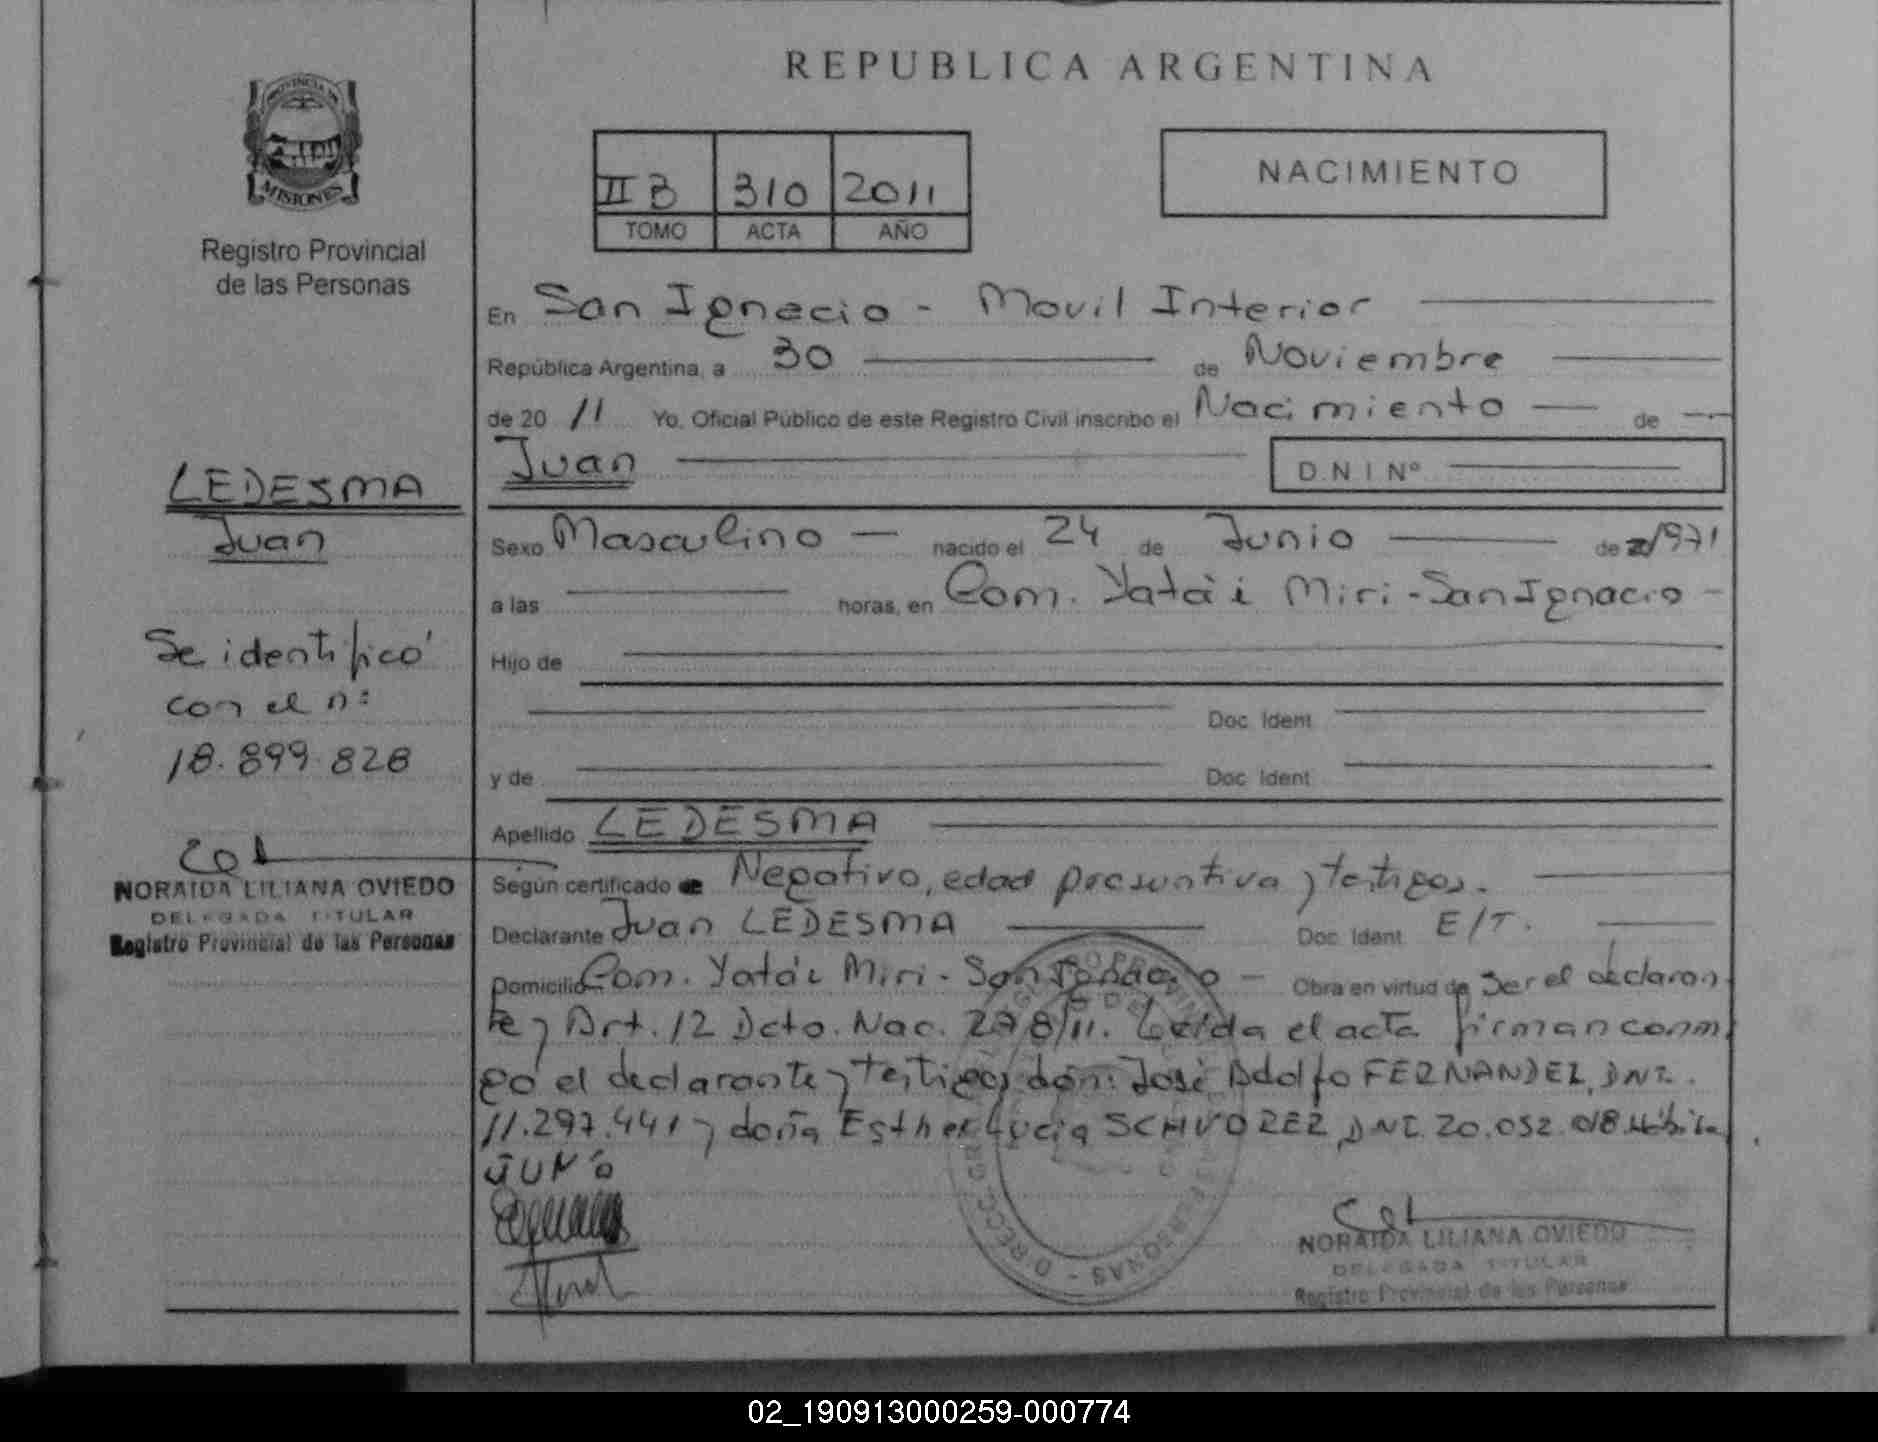 REPUBLICA ARGENTINA
PROVINCIA DE
MISIONES
Registro Provincial
de las Personas
II B 310 2011
TOMO ACTA AÑO
NACIMIENTO
En San Ignacio - Movil Interior
República Argentina, a 30 de Noviembre
de 20 11 Yo, Oficial Público de este Registro Civil inscribo el Nacimiento de
Juan
D.N.I Nº
LEDESMA
Juan
Se identificó
con el nº
18.899.828
NORAIDA LILIANA OVIEDO
DELEGADA TITULAR
Registro Provincial de las Personas
Sexo Masculino nacido el 24 de Junio de 1971
a las horas, en Com. Yatà i Miri - San Ignacio -
Hijo de
Doc. Ident
y de Doc. Ident
Apellido LEDESMA
Según certificado de Negativo, edad presuntiva y testigos.
Declarante Juan LEDESMA Doc. Ident E/T.
Domicilio Com. Yatá i Miri - San Ignacio - Obra en virtud de Ser el declaran
te y Art. 12 Dcto. Nac. 278/11. Leída el acta firman conmi
go el declarante y testigos don: José Adolfo FERNANDEZ, DNI.
11.297.441 y doña Esther Lucia SCHVORER, DNI. 20.052.018
JUAN
NORAIDA LILIANA OVIEDO
DELEGADA TITULAR
Registro Provincial de las Personas
02_190913000259-000774